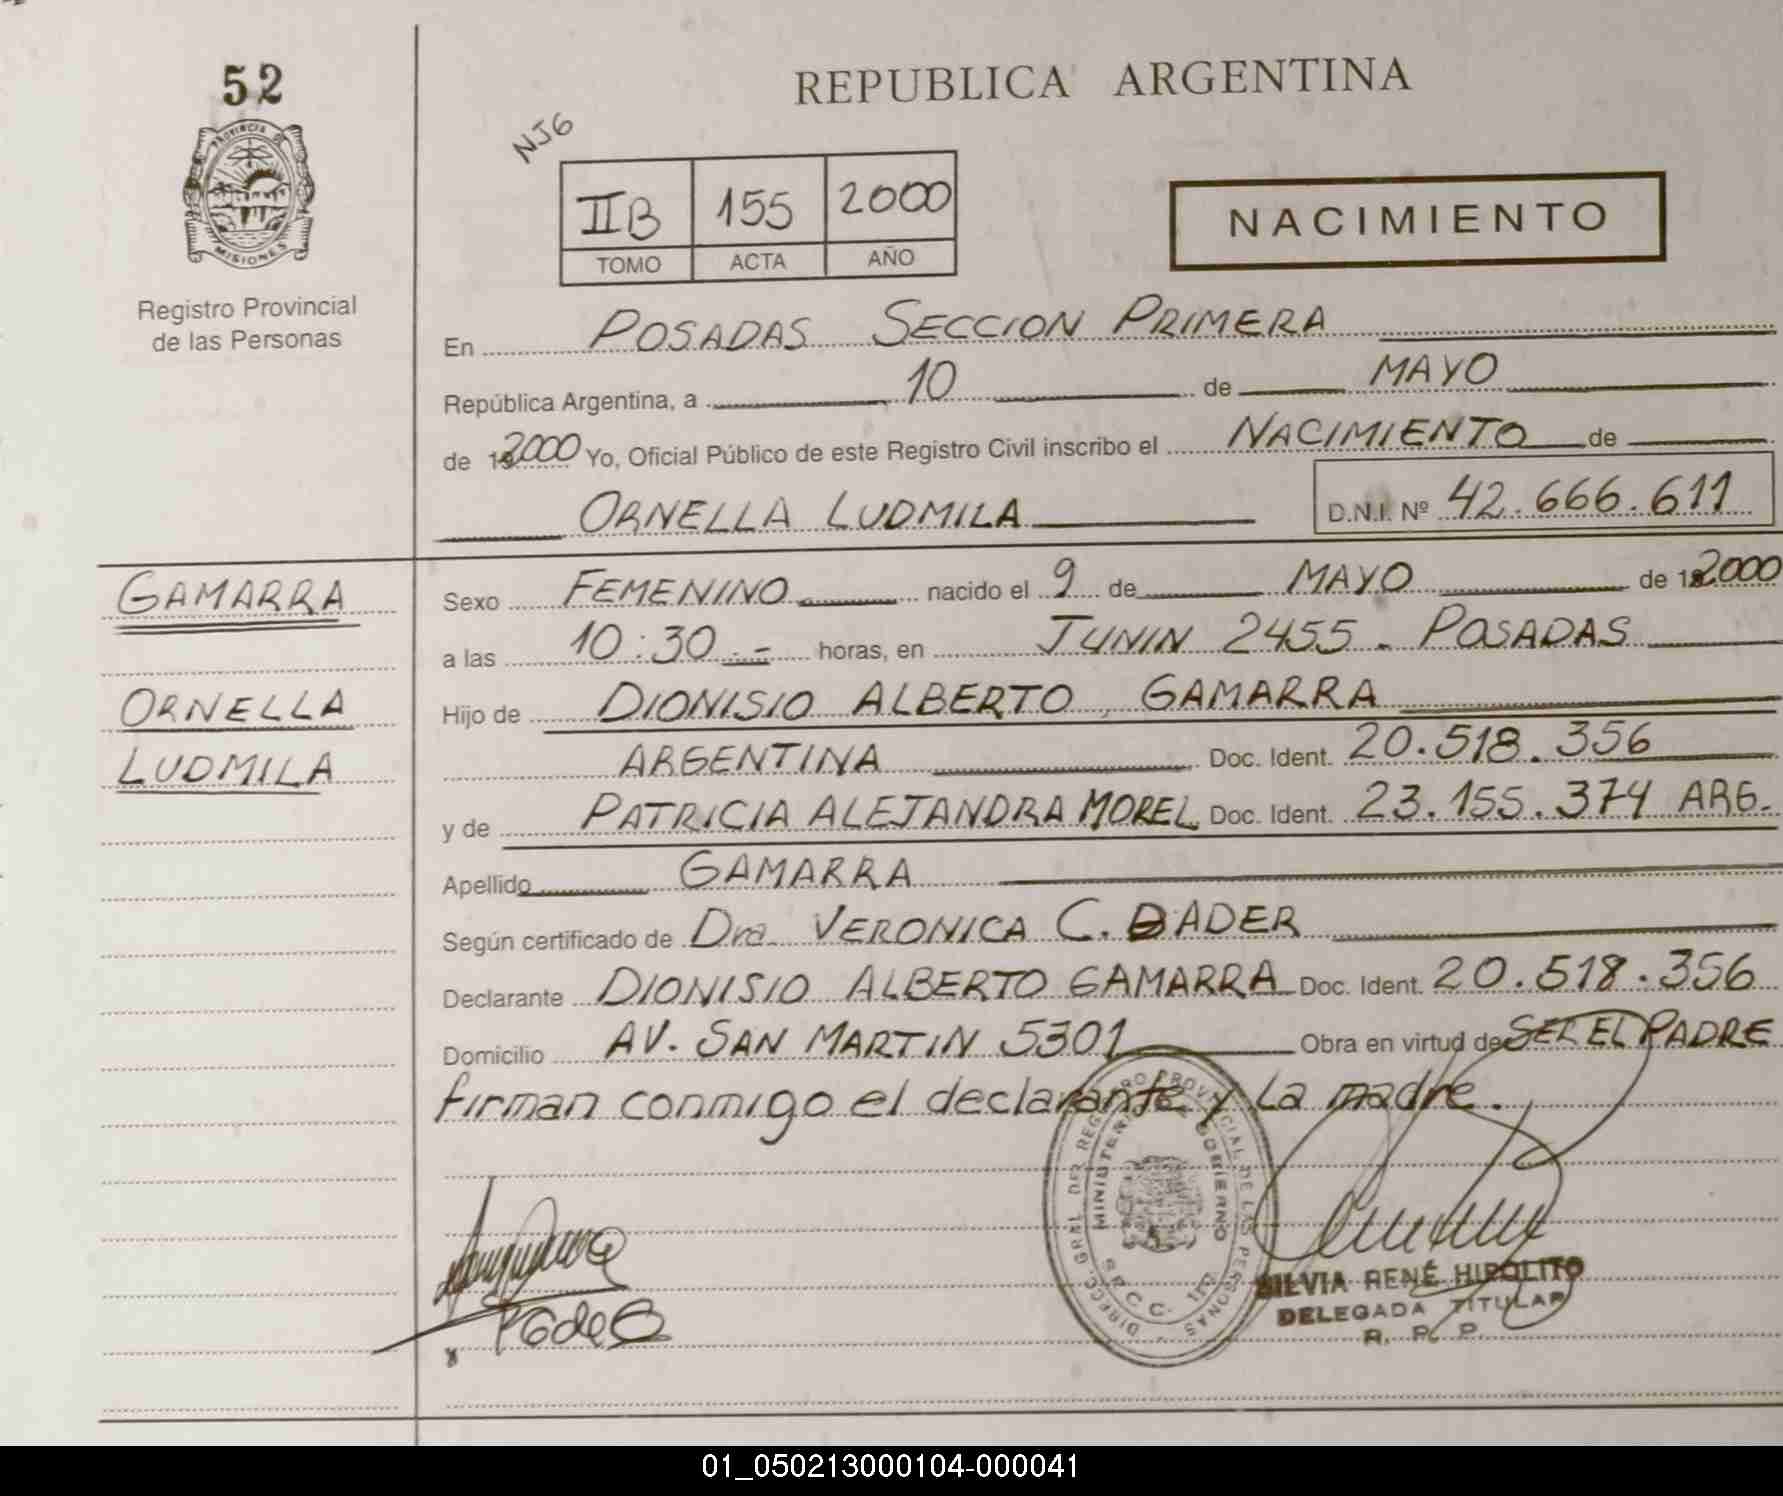 52
REPUBLICA ARGENTINA
NJ6
PROVINCIA DE
MISIONES
IIB 155 2000
TOMO ACTA AÑO
NACIMIENTO
Registro Provincial
de las Personas
En POSADAS SECCION PRIMERA
República Argentina, a 10 de MAYO
de 2000 Yo, Oficial Público de este Registro Civil inscribo el NACIMIENTO de
ORNELLA LUDMILA D.N.I. Nº 42.666.611
GAMARRA
ORNELLA
LUDMILA
Sexo FEMENINO nacido el 9 de MAYO de 2000
a las 10:30.- horas, en JUNIN 2455 - POSADAS
Hijo de DIONISIO ALBERTO GAMARRA
ARGENTINA Doc. Ident. 20.518.356
y de PATRICIA ALEJANDRA MOREL Doc. Ident. 23.155.374 ARG.
Apellido GAMARRA
Según certificado de Dra. VERONICA C. BADER
Declarante DIONISIO ALBERTO GAMARRA Doc. Ident. 20.518.356
Domicilio AV. SAN MARTIN 5301 Obra en virtud de SER EL PADRE
firman conmigo el declarante y La madre.
DIRECC. GRAL. DEL REGISTRO PROVINCIAL DE LAS PERSONAS
MINISTERIO GOBIERNO
SECC. 1ra
SILVIA RENÉ HIPOLITO
DELEGADA TITULAR
R. P. P.
01_050213000104-000041